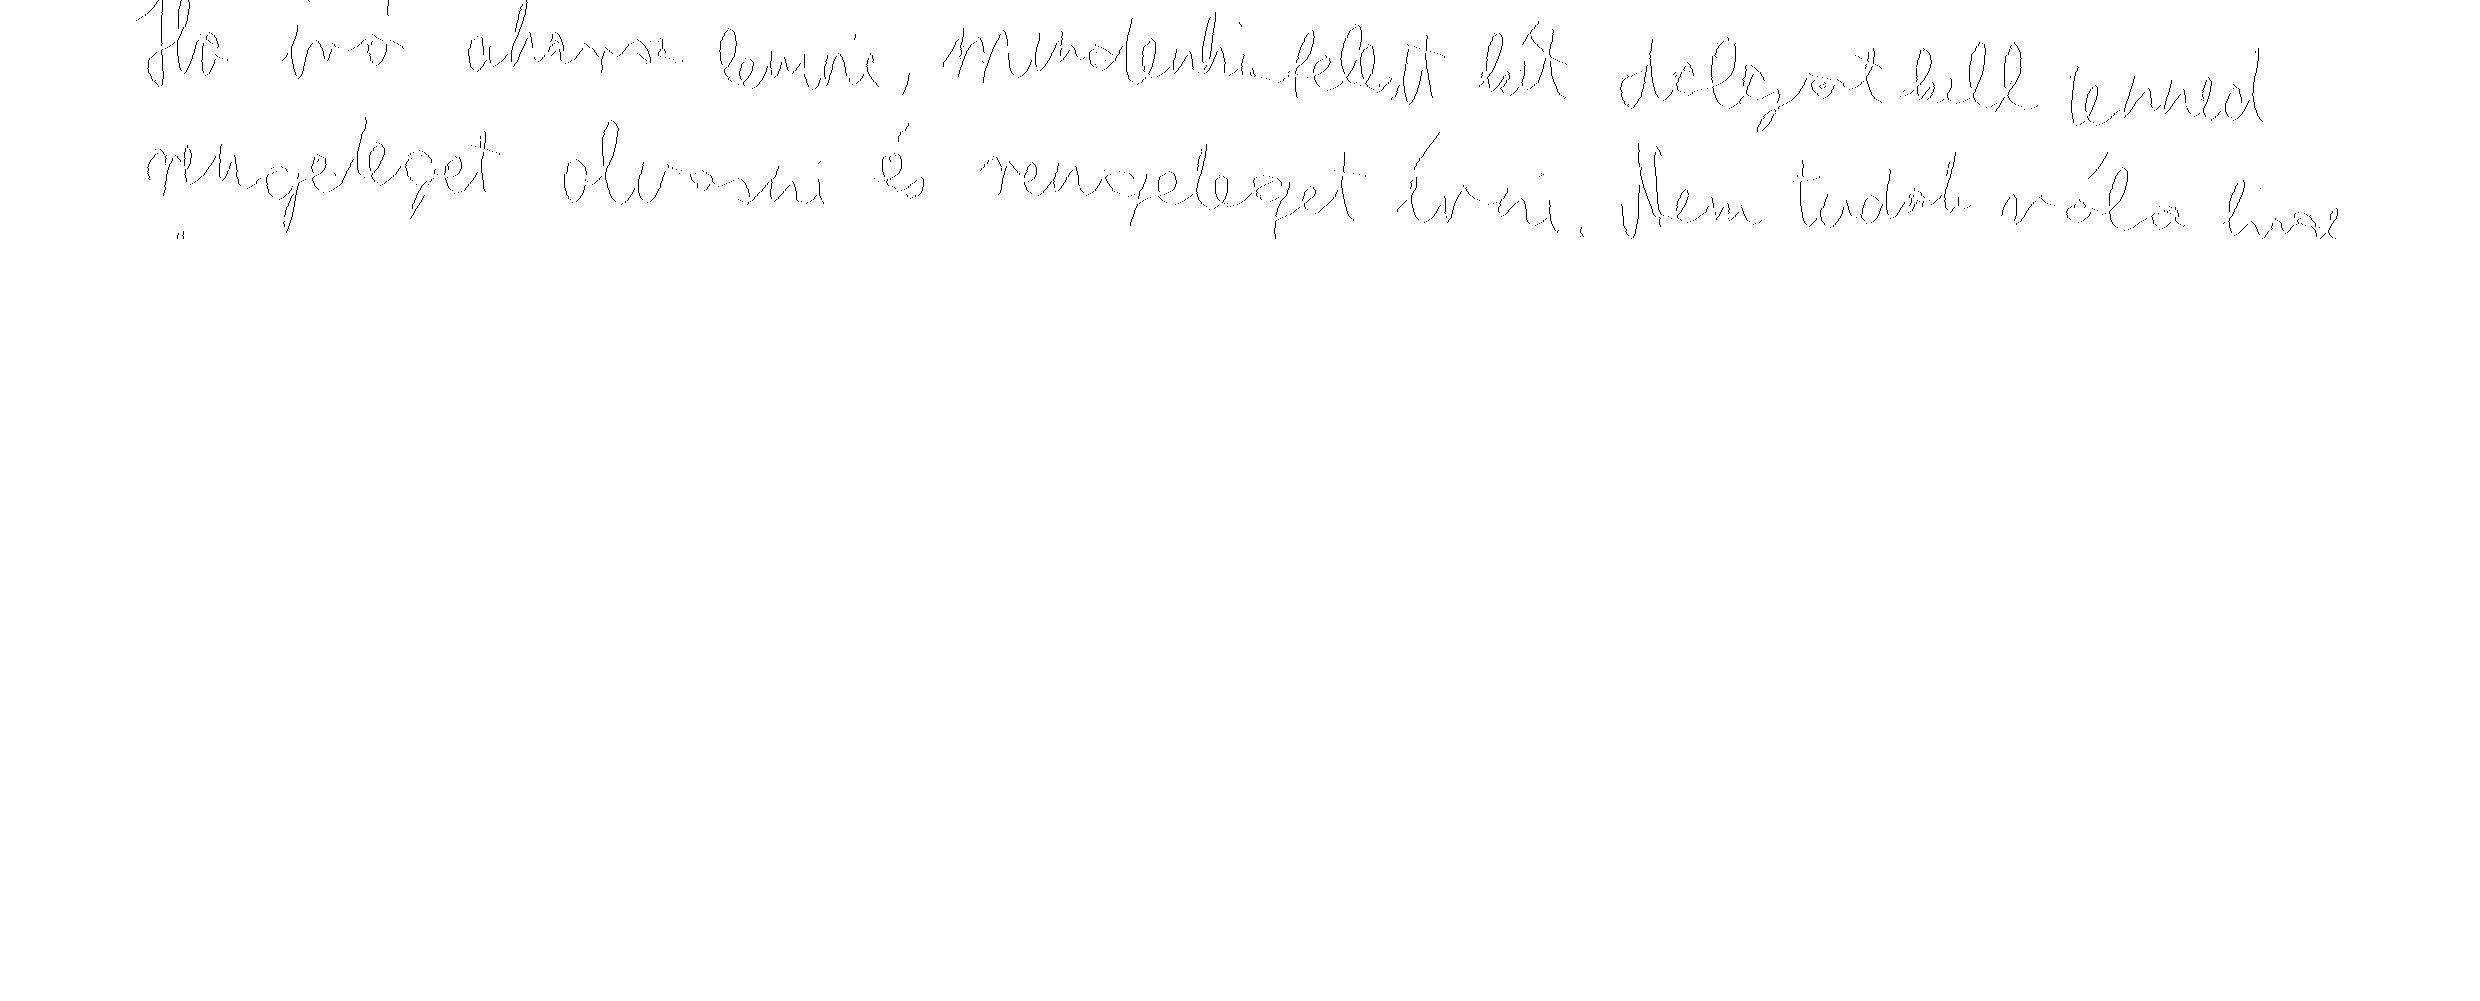 Ha író akarsz lenni, mindenki felett két dolgot kell tenned
rengeteget olvasni és rengeteget írni. Nem tudok róla hogy